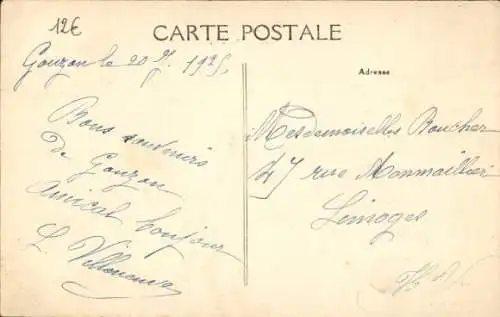 12€
CARTE POSTALE
Gouzon le 20 1925
Adresse
Bons souvenirs
de Gouzon
amical bonjour
L. Villeneuve
Mesdemoiselles Boucher
47 rue Monmailler
Limoges